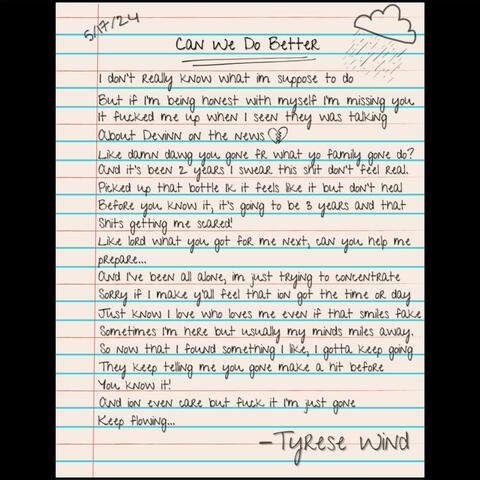 5/17/24
Can We Do Better
I don't really know what im suppose to do
But if I'm being honest with myself I'm missing you
It fucked me up when I seen they was talking
About Devinn on the news
Like damn dawg you gone fr what yo family gone do?
And it's been 2 years I swear this shit don't feel real.
Picked up that bottle Ik it feels like it but don't heal
Before you know it, it's going to be 3 years and that
Shits getting me scared!
Like lord what you got for me next, can you help me
prepare...
And I've been all alone, im just trying to concentrate
Sorry if I make y'all feel that ion got the time or day
Just know I love who loves me even if that smiles fake
Sometimes I'm here but usually my minds miles away.
So now that I found something I like, I gotta keep going
They keep telling me you gone make a hit before
You know it!
And ion even care but fuck it I'm just gone
Keep flowing...
-Tyrese Wind